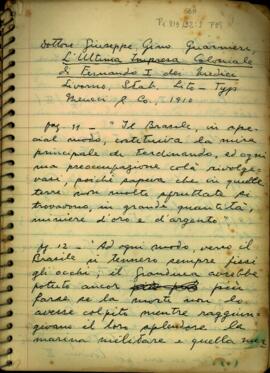 Dottore Giuseppe Gino Guarnieri,
L'Ultima Impresa Coloniale
di Fernando I dei Medici
Livorno, Stab. Lito-Typ
Meucci & Co. 1910
pag 11 - "Il Brasile, in spe-
cial modo, costituiva la mira
principale di Ferdinando, ed ogni
sua preoccupazione colà rivolge-
vasi, poichè sapeva che in quelle
terre non molto sfruttate si
trovavano, in grande quantità,
miniere d'oro e d'argento"
pg. 12 - "Ad ogni modo, verso il
Brasile si tennero sempre fissi
gli occhi; il Granduca avrebbe
potuto ancor più
farse, se la morte non lo
avesse colpito mentre raggiun-
gevano il loro splendore la
marina militare e quella mer